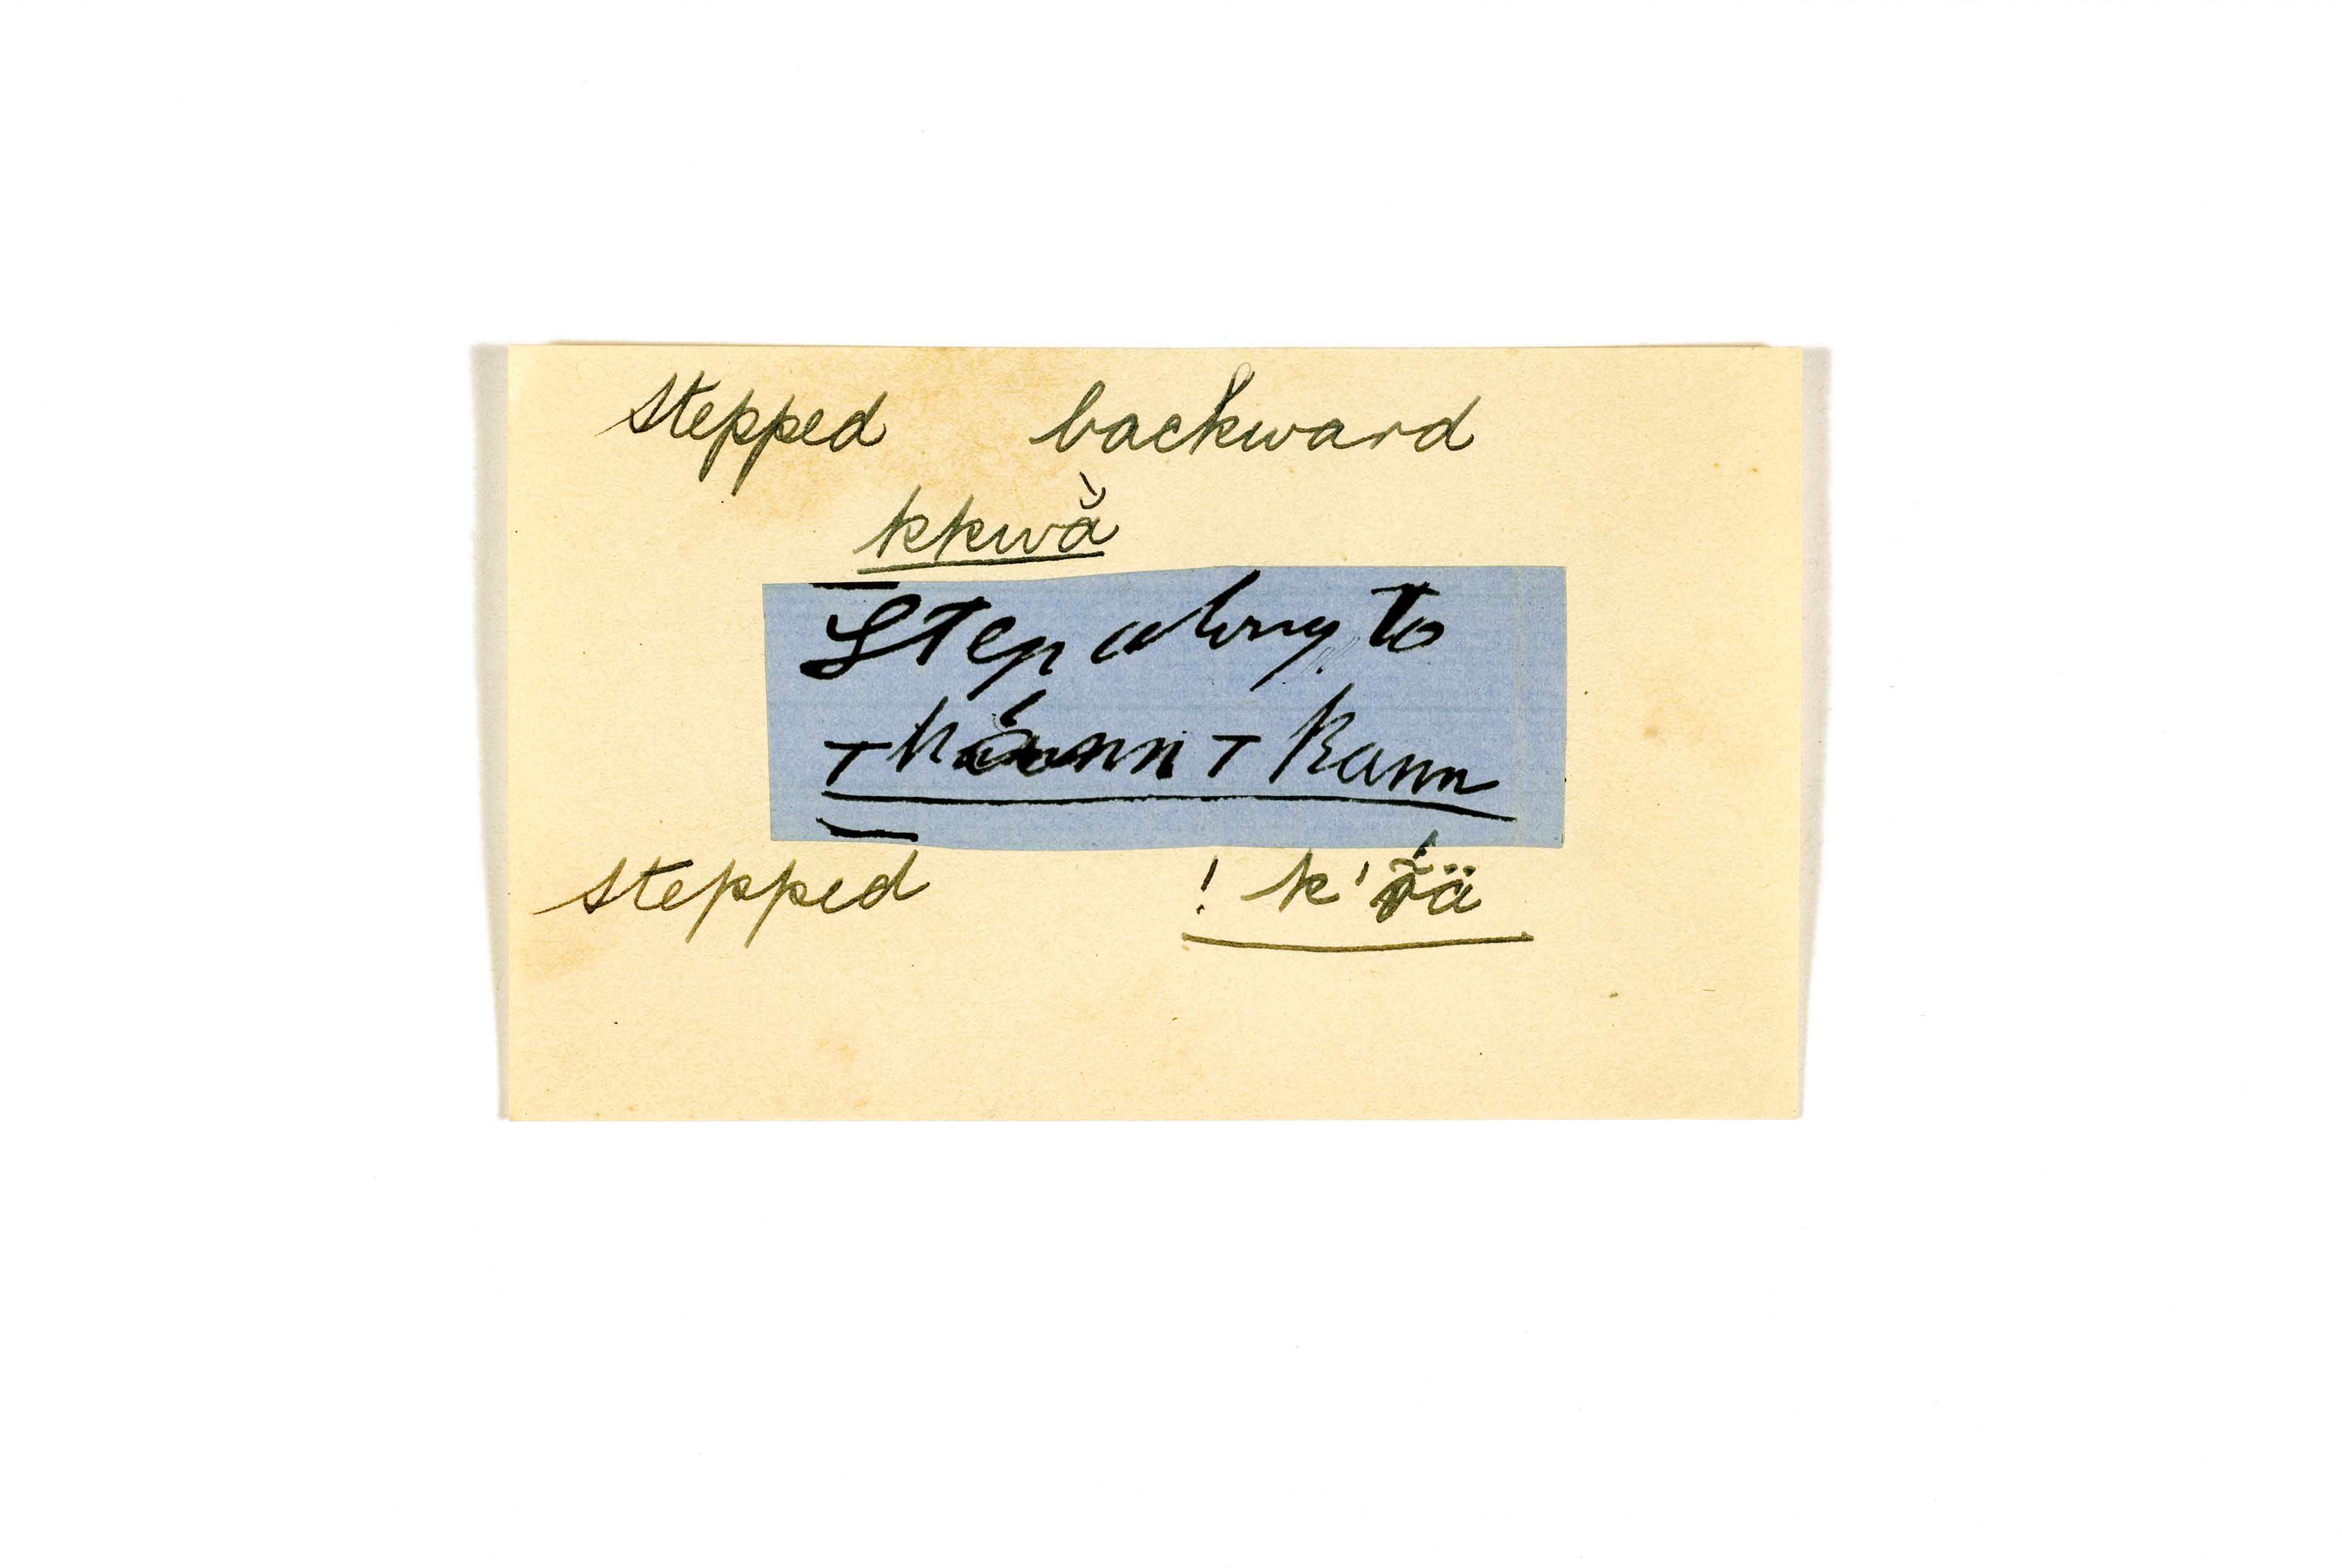 stepped backward
kkwằ
Step along to
⊤kánn ⊤kann
stepped ! k'r̃ä